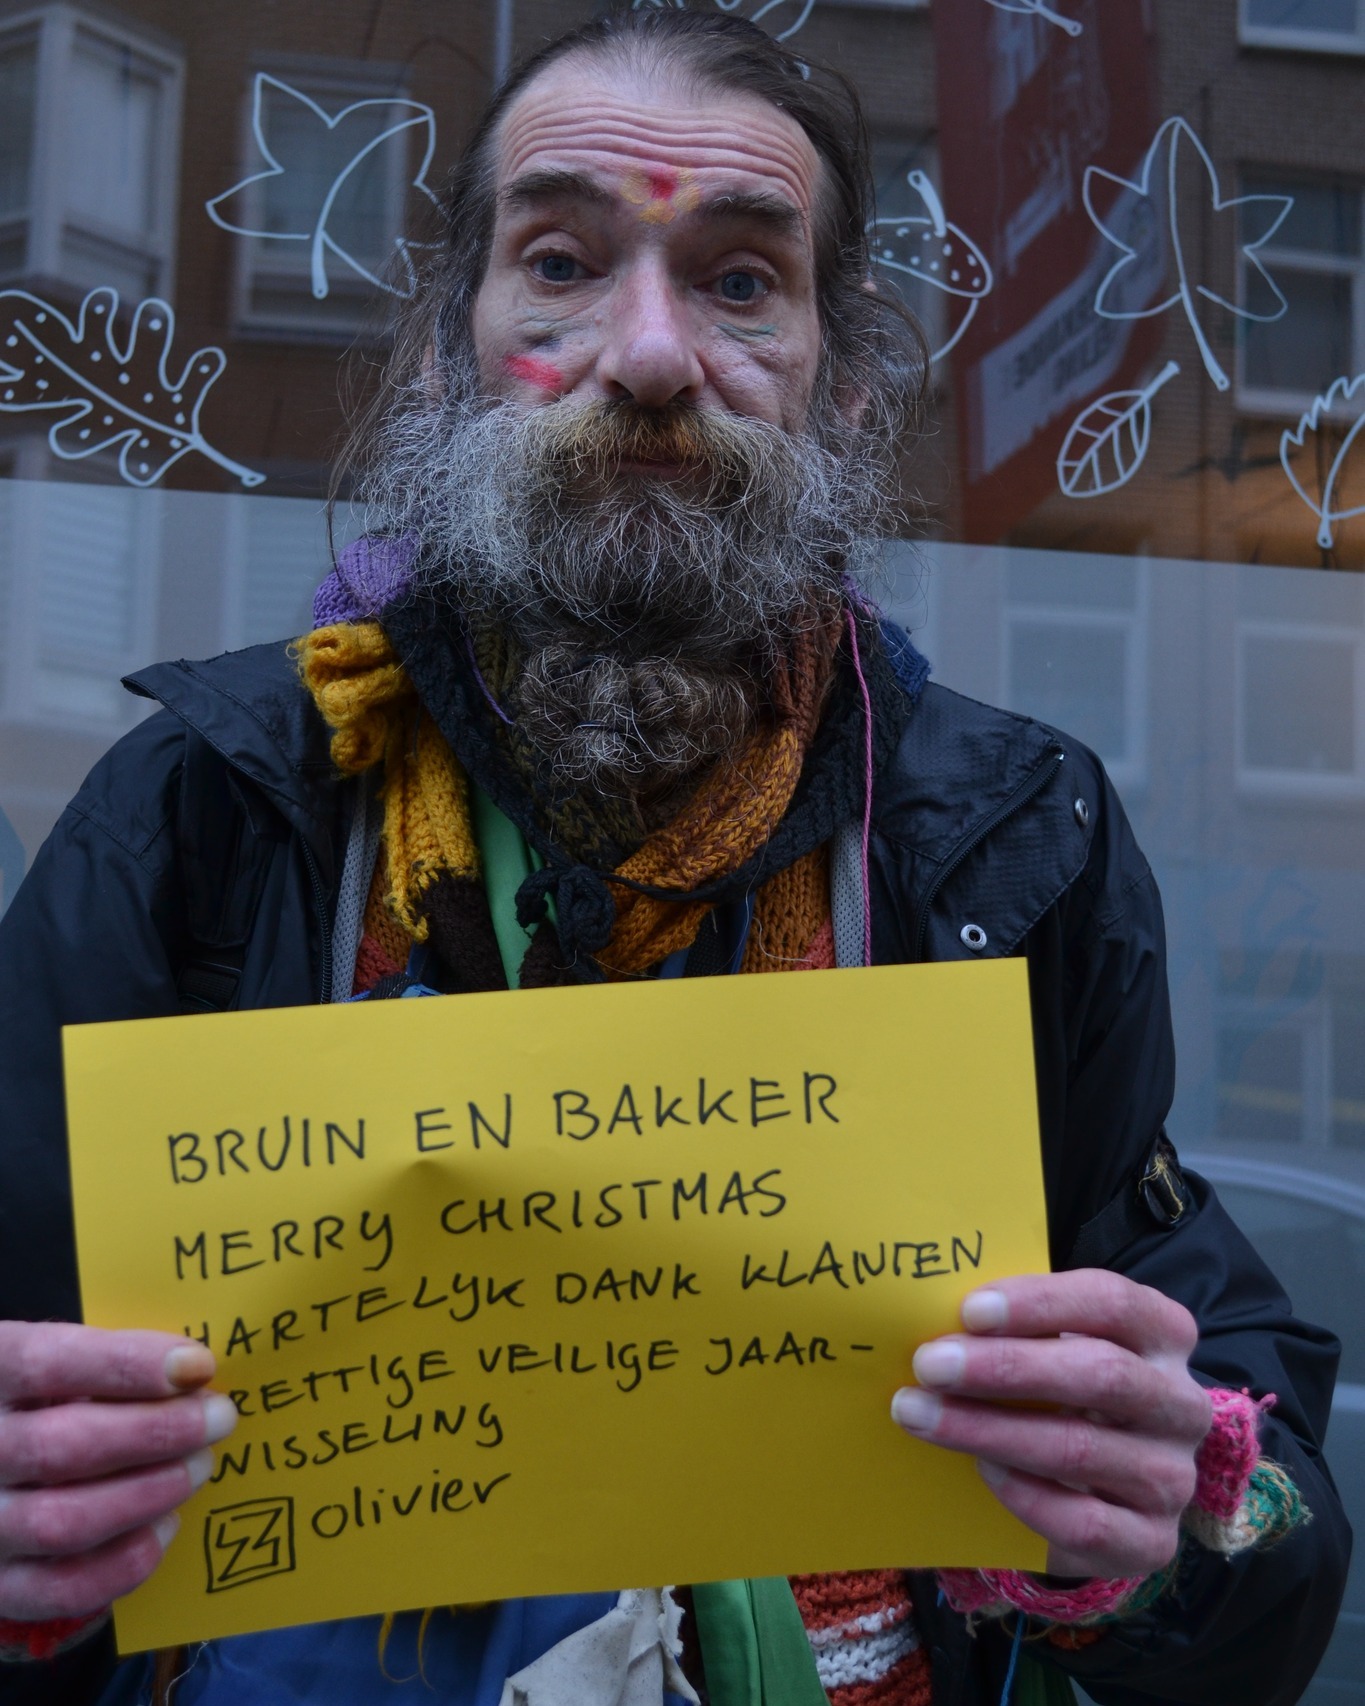 BRUIN EN BAKKER
MERRY CHRISTMAS
HARTELYK DANK KLANTEN
RETTIGE VEILIGE JAAR-
WISSELING
olivier